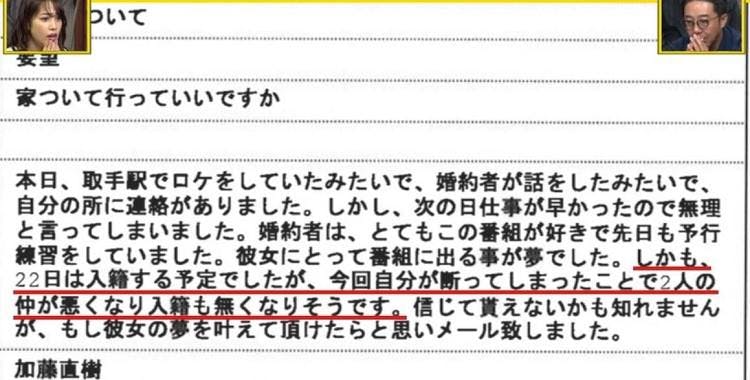 ついて
要望
家ついて行っていいですか
本日、取手駅でロケをしていたみたいで、婚約者が話をしたみたいで、
自分の所に連絡がありました。しかし、次の日仕事が早かったので無理
と言ってしまいました。婚約者は、とてもこの番組が好きで先日も予行
練習をしていました。彼女にとって番組に出る事が夢でした。しかも、
22日は入籍する予定でしたが、今回自分が断ってしまったことで2人の
仲が悪くなり入籍も無くなりそうです。信じて貰えないかも知れません
が、もし彼女の夢を叶えて頂けたらと思いメール致しました。
加藤直樹